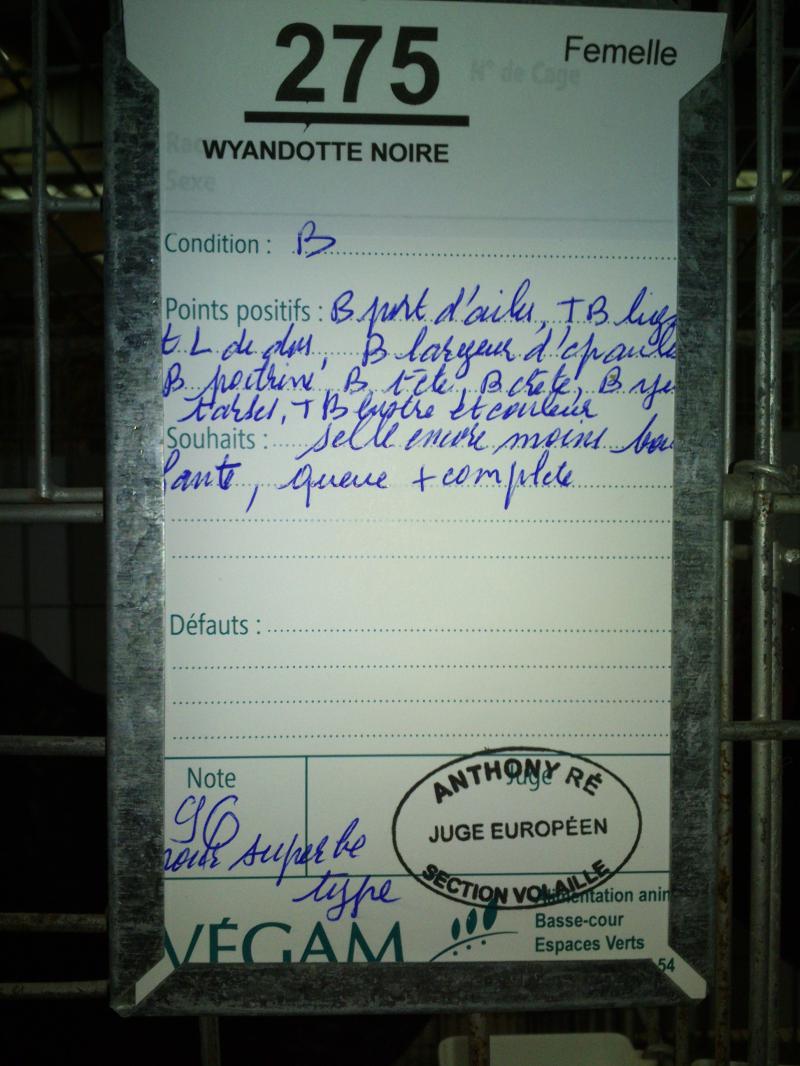 275
Femelle
N° de Cage
WYANDOTTE NOIRE
Sexe
Condition : B
Points positifs : B port d'ailes, TB lig
t L de dos, B largeur d'épaule
B poitrine, B tête, B crête, B ye
tarses, TB lustre et couleur
Souhaits : selle encore moins bou
lante, queue + complète
Défauts :
Note
Juge
96
pour superbe
type
ANTHONY RÉ
JUGE EUROPÉEN
SECTION VOLAILLE
VÉGAM
Alimentation anim
Basse-cour
Espaces Verts
54